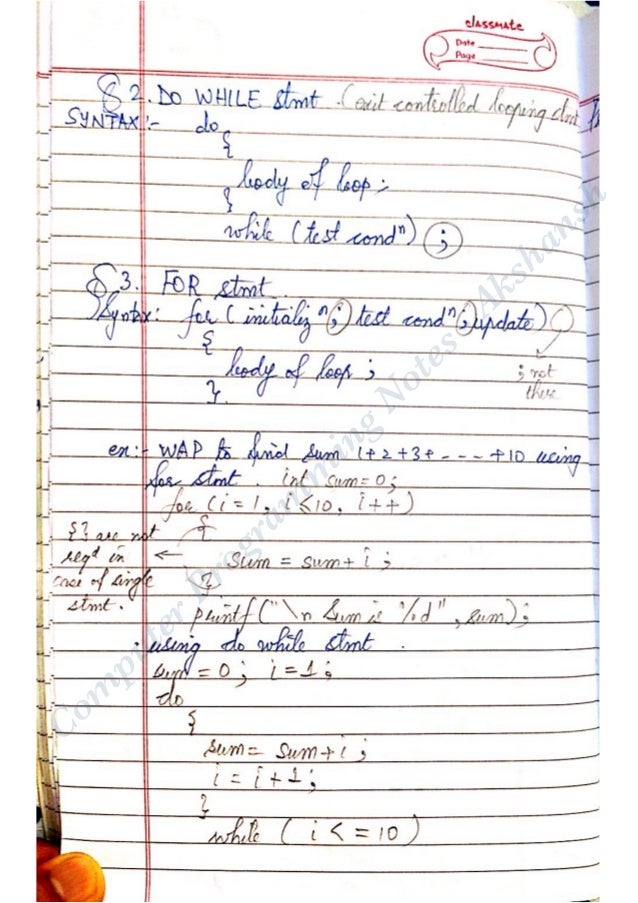 classmate
Date
Page
§ 2. DO WHILE stmt. (exit controlled looping stmt
SYNTAX :- do
{
body of loop;
}
while (test condⁿ) ;
§ 3. FOR stmt
Syntax: for (initializⁿ ; test condⁿ ; update)
{
body of loop ;
}.
; not
there
ex:- WAP to find sum 1+2+3+ - - - - +10 using
for stmt. int sum=0;
for (i=1, i<10, i++)
{
{ } are not
reqd in
case of single
stmt.
←
sum = sum+i ;
}
printf("\n Sum is %d", sum);
using do while stmt.
sum=0; i=1;
do
{
sum= sum+i ;
i = i+1;
}
while ( i <= 10)
Computer Programming Notes Akshansh